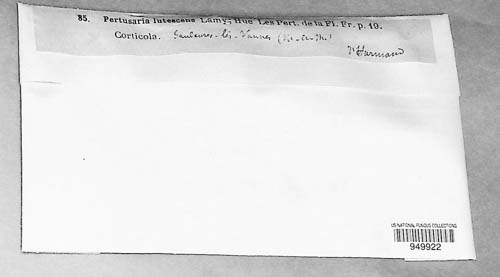 85. Pertusaria lutescens Lamy, Hue Les Pert. de la Fl. Fr. p. 19.
Corticola.
Harmand
US NATIONAL FUNGUS COLLECTIONS
949922